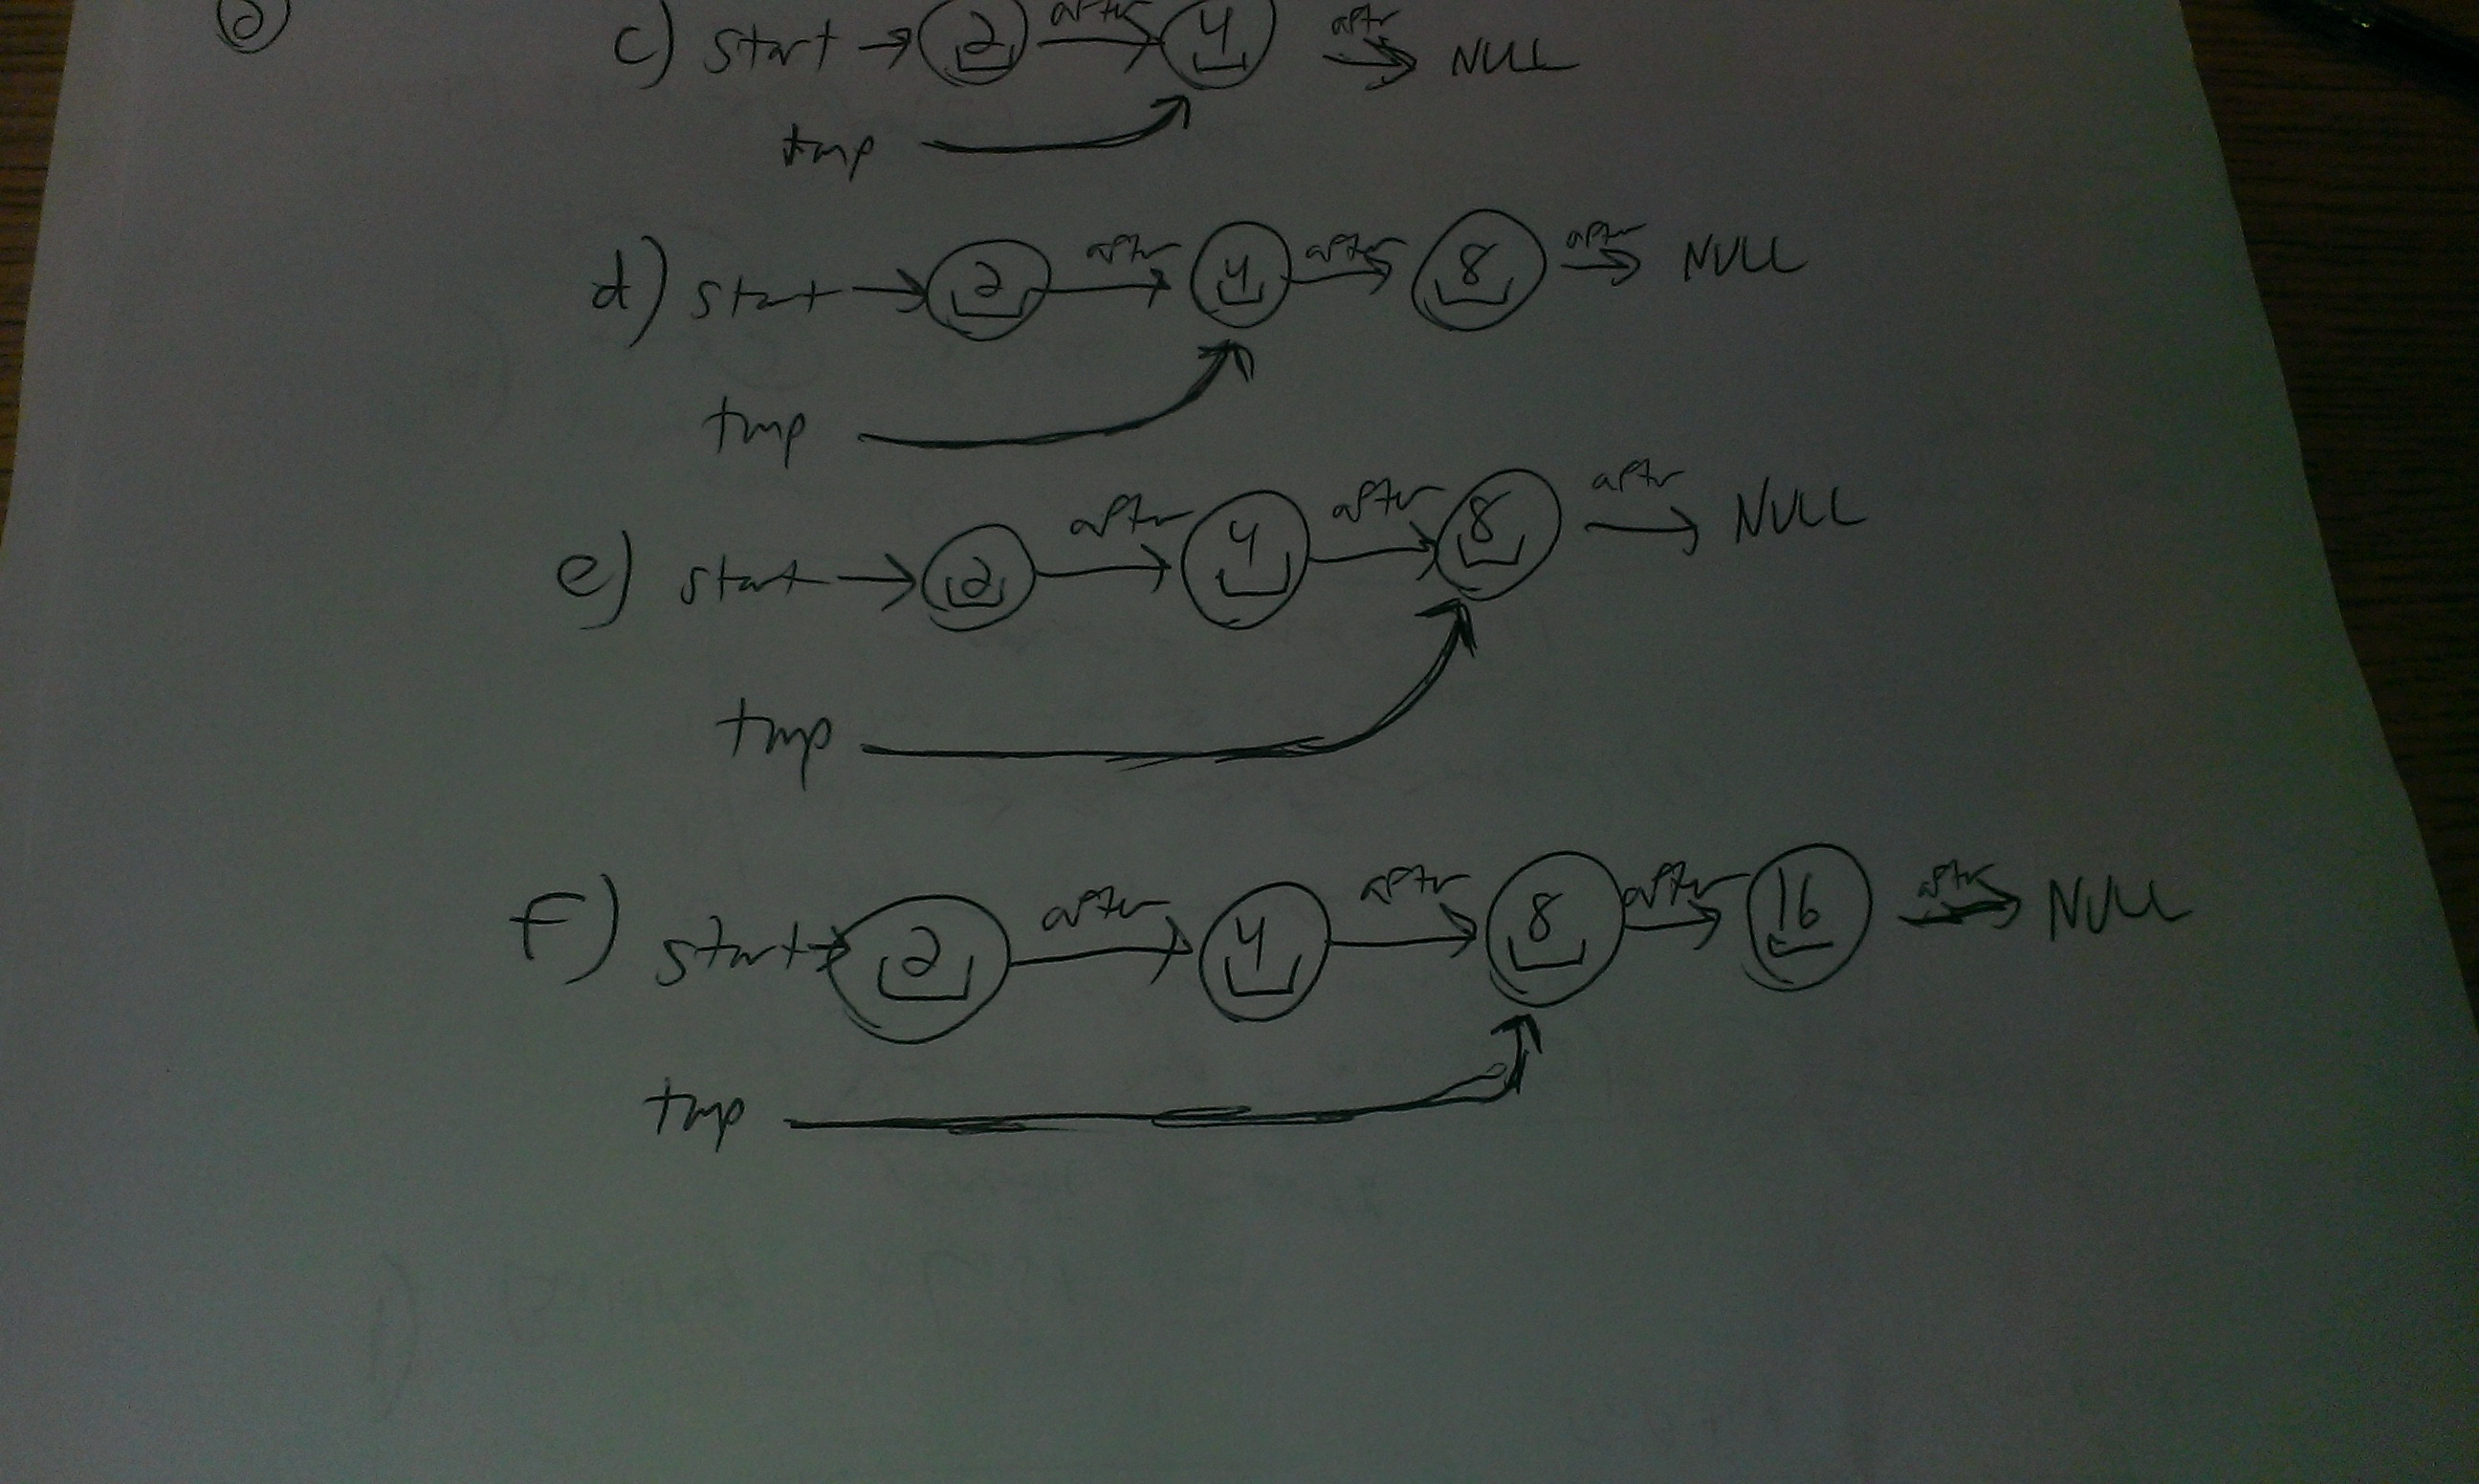 2 c) start → 2 after → 4 after → NULL
tmp
d) start → 2 after → 4 after → 8 after → NULL
tmp
e) start → 2 after → 4 after → 8 after → NULL
tmp
f) start → 2 after → 4 after → 8 after → 16 after → NULL
tmp